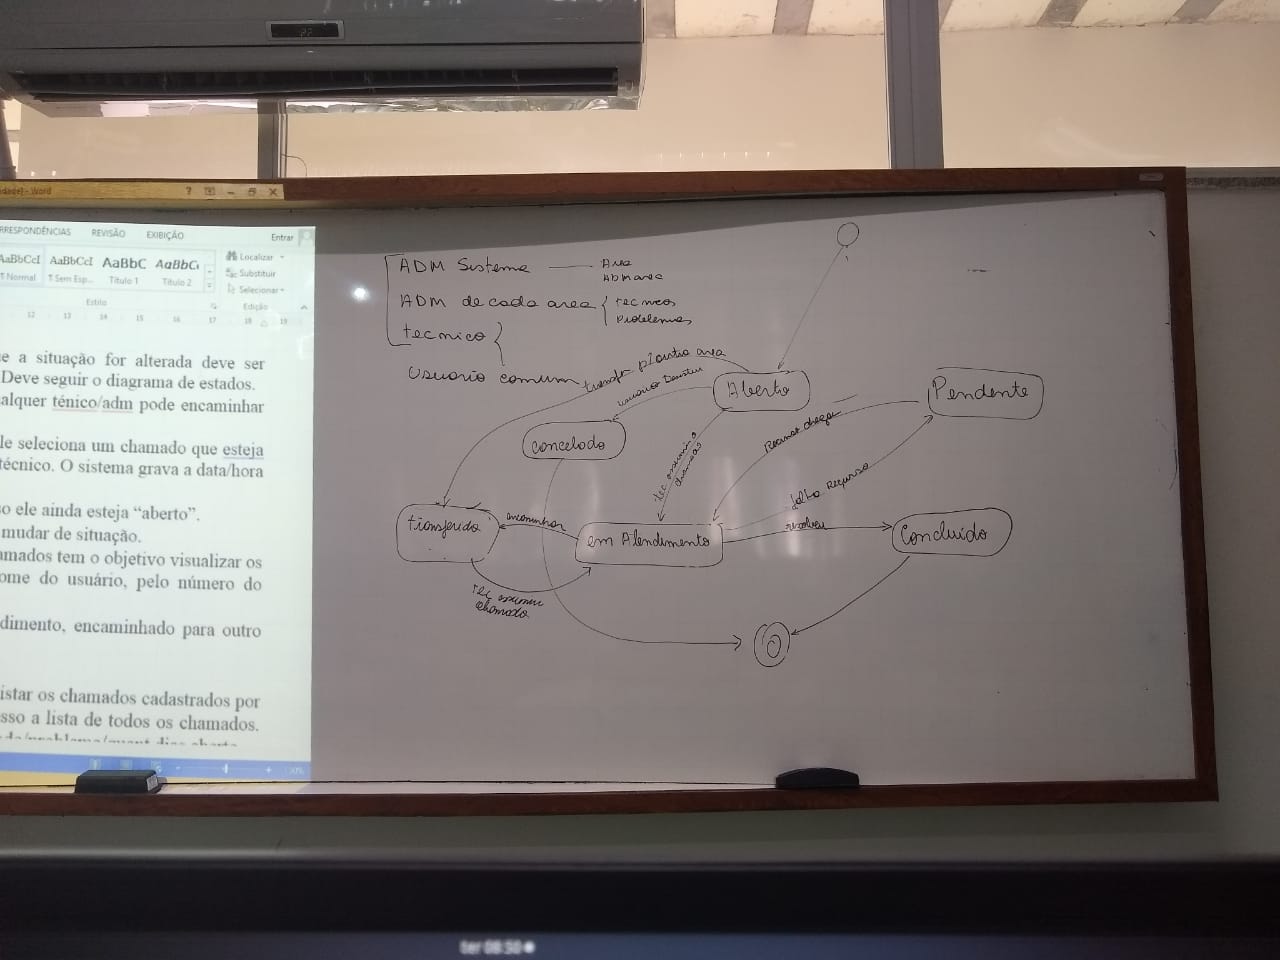 22
- Word
?
RRESPONDÊNCIAS REVISÃO EXIBIÇÃO Entrar
AaBbCcI AaBbCcI AaBbC AaBbCc
¶ Normal ¶ Sem Esp... Título 1 Título 2
Localizar
Substituir
Selecionar
Estilo Edição
12 13 14 15 16 17 18 19
e a situação for alterada deve ser
Deve seguir o diagrama de estados.
alquer ténico/adm pode encaminhar
le seleciona um chamado que esteja
técnico. O sistema grava a data/hora
o ele ainda esteja “aberto”.
mudar de situação.
amados tem o objetivo visualizar os
ome do usuário, pelo número do
dimento, encaminhado para outro
istar os chamados cadastrados por
sso a lista de todos os chamados.
ADM Sistema Area
Adm area
ADM de cada area { tecnicos
Problemas
tecnico
Usuario comum
transfr p/outra area
usuario
Aberto
Pendente
Cancelado
tec assumiu
chamado
Recurso chegou
falta Recurso
transferido
encaminhar
em Atendimento
resolveu
Concluído
tec assumiu
chamado
ter 08:50